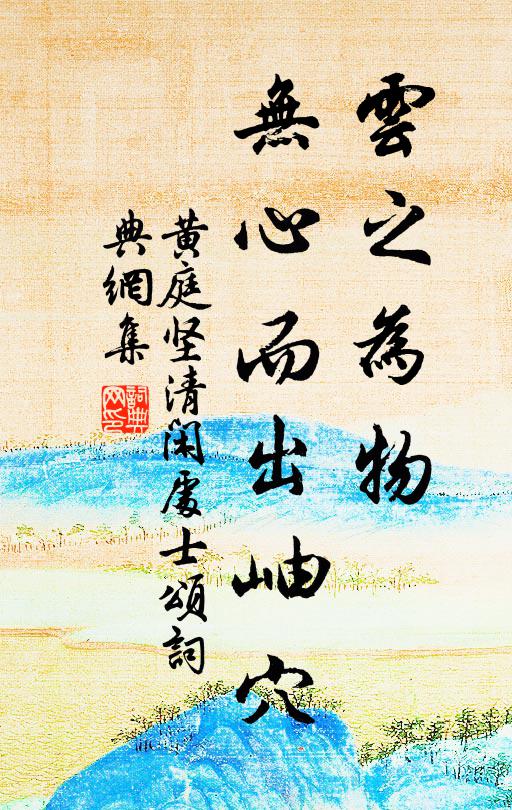 雲之為物
無心而出岫穴
黄庭坚清閑處士頌詞
典網集
詞典
网印